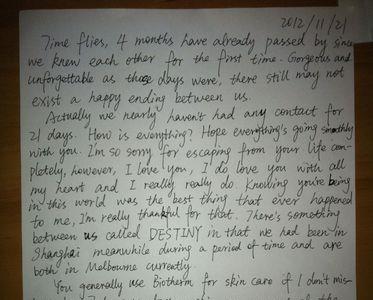 2012/11/21
Time flies, 4 months have already passed by since
we knew each other for the first time. Gorgeous and
unforgettable as those days were, there still may not
exist a happy ending between us.
Actually we nearly haven't had any contact for
21 days. How is everything? Hope everything's going smoothly
with you. I'm so sorry for escaping from your life com-
pletely, however, I love you, I do love you with all
my heart and I really really do. Knowing you're being
in this world was the best thing that ever happened
to me, I'm really thankful for that. There's something
between us called DESTINY in that we had been in
Shanghai meanwhile during a period of time and are
both in Melbourne currently.
You generally use Biotherm for skin care if I don't mis-